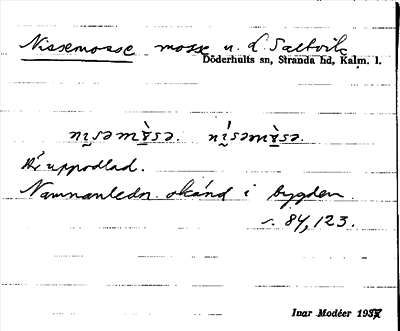 Nissemosse mosse u. L. Saltvik
Döderhults sn, Stranda hd, Kalm. l.
nìsəmɔ̀sə. nísəmɔ̀sə.
Är uppodlad.
Namnanledn. okänd i bygden.
s. 84, 123.
Ivar Modéer 1937